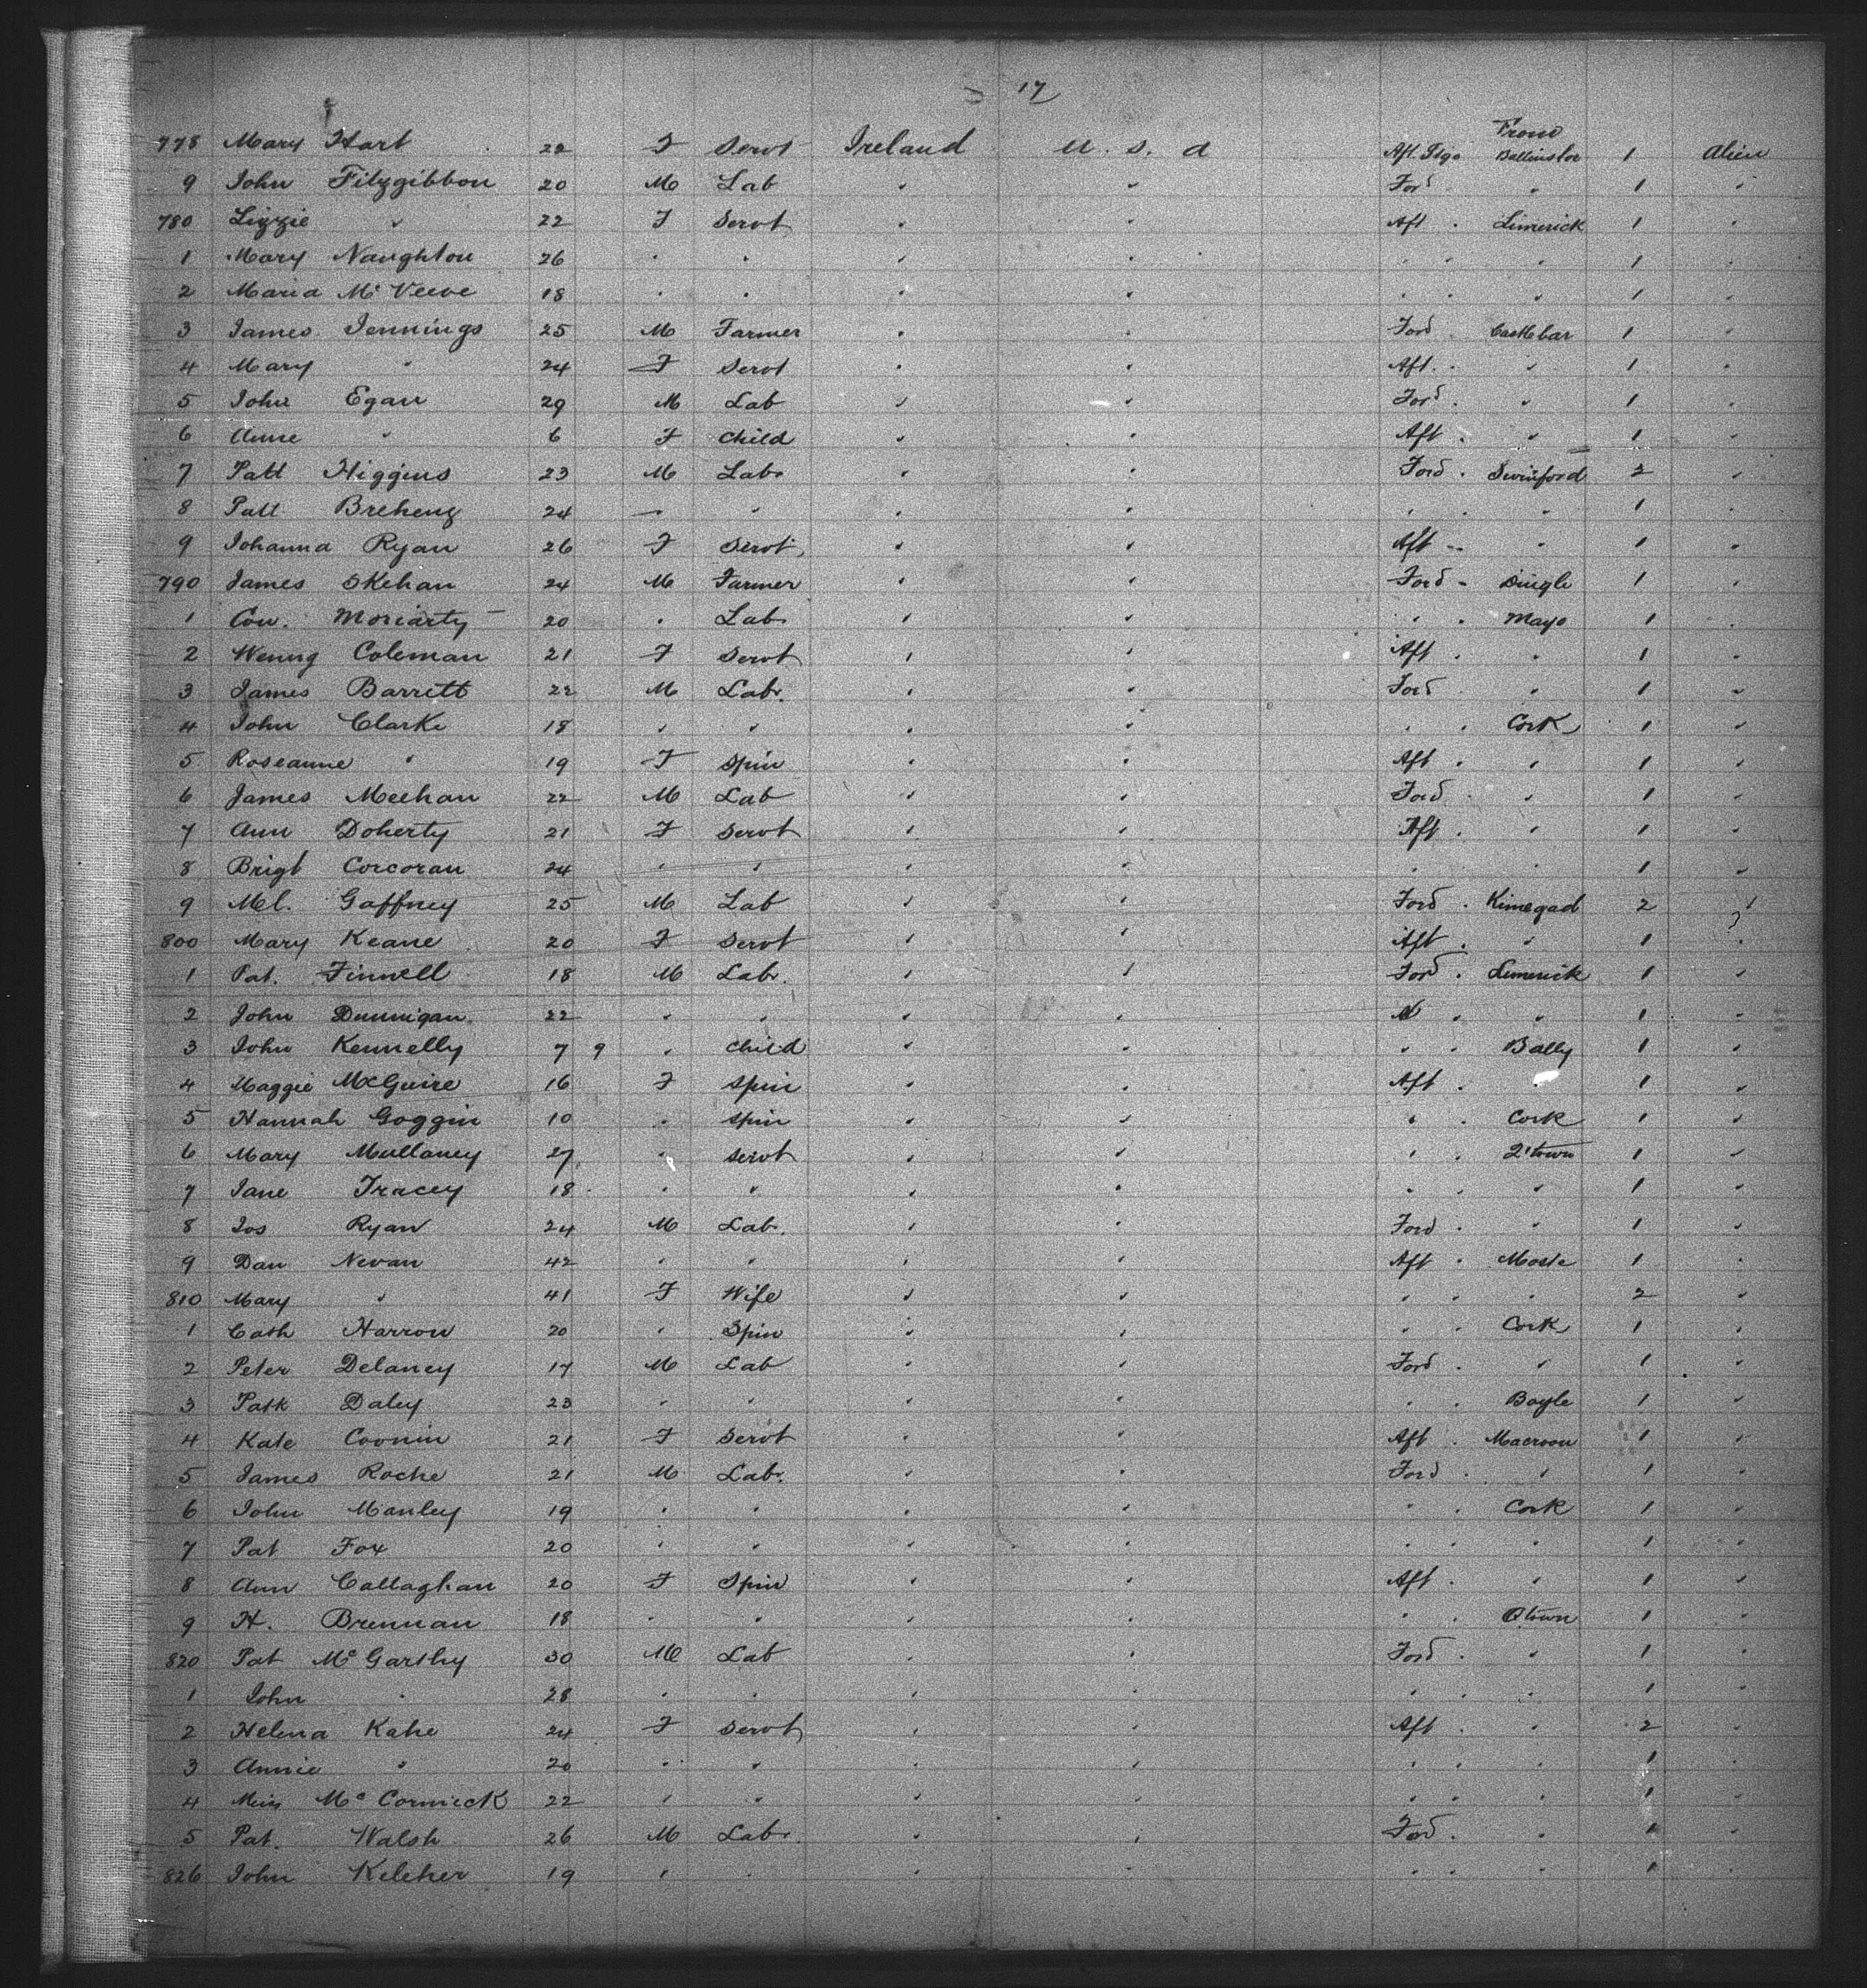 17
From
778 Mary Hart 22 F Servt Ireland U. S. A Aft. Stge 1 Alien
9 John Fitzgibbon 20 M Lab " " Ford " 1 "
780 Lizzie " 22 F Servt " " Aft " Limerick 1 "
1 Mary Naughton 26 " " " " " " " 1 "
2 Maria Mc Veeve 18 " " " " " " " 1 "
3 James Jennings 25 M Farmer " " Ford Castlebar 1 "
4 Mary " 24 F Servt " " Aft " " 1 "
5 John Egan 29 M Lab " " Ford " " 1 "
6 Anne " 6 F Child " " Aft " " 1 "
7 Patt Higgins 23 M Labr " " Ford " Swinford 2 "
8 Patt Breheny 24 " " " " " " " 1 "
9 Johanna Ryan 26 F Servt " " Aft " " 1 "
790 James Skehan 24 M Farmer " " Ford " Dingle 1 "
1 Con. Moriarty 20 " Lab " " " " Mayo 1 "
2 Wenny Coleman 21 F Servt " " Aft " " 1 "
3 James Barrett 22 M Labr. " " Ford " 1 "
4 John Clarke 18 " " " " " " Cork 1 "
5 Roseanne " 19 F Spin " " Aft " " 1 "
6 James Meehan 22 M Lab " " Ford " " 1 "
7 Ann Doherty 21 F Servt " " Aft " " 1 "
8 Brigt Corcoran 24 " " " " " " 1 "
9 Ml. Gaffney 25 M Lab " " Ford " Kinnegad 2 "
800 Mary Keane 20 F Servt " " Aft " " 1 "
1 Pat. Finnell 18 M Labr. " " Ford " Limerick 1 "
2 John Dunnigan 22 " " " " " " 1 "
3 John Kennelly 7 9 " Child " " " " Bally 1 "
4 Maggie McGuire 16 F Spin " " Aft " " 1 "
5 Hannah Goggin 10 " Spin " " " " Cork 1 "
6 Mary Mullaney 27 " Servt " " " " Q'town 1 "
7 Jane Tracey 18 " " " " " " " 1 "
8 Jos Ryan 24 M Lab. " " Ford " " 1 "
9 Dan Nevan 42 " " " " Aft " 1 "
810 Mary " 41 F Wife " " " " " 2 "
1 Cath Harron 20 " Spin " " " " Cork 1 "
2 Peter Delaney 17 M Lab " " Ford " " 1 "
3 Patk Daley 23 " " " " " " Boyle 1 "
4 Kate Coonin 21 F Servt " " Aft " Macroon 1 "
5 James Roche 21 M Lab. " " Ford " " 1 "
6 John Manley 19 " " " " " " Cork 1 "
7 Pat Fox 20 " " " " " " " 1 "
8 Ann Callaghan 20 F Spin " " Aft " " 1 "
9 H. Brennan 18 " " " " " " Qtown 1 "
820 Pat Mc Garthy 30 M Lab " " Ford " " 1 "
1 John " 28 " " " " " " " 1 "
2 Helena Kahe 24 F Servt " " Aft " " 2 "
3 Annie " 20 " " " " " " " 1 "
4 Mc Cormick 22 " " " " " " " 1 "
5 Pat. Walsh 26 M Labr " " Ford " " 1 "
826 John Keleher 19 " " " " " " " 1 "